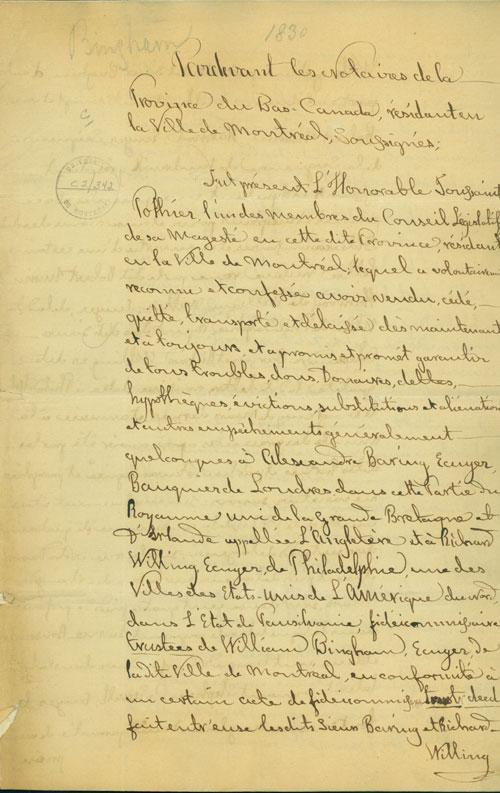 Bingham
1830
Pardevant les Notaires de la
Province du Bas-Canada, résidant en
la Ville de Montréal, Soussignés;
C 2/342
Fut présent L'Honorable Toussaint
Pothier, l'un des membres du Conseil Législatif
de sa Magesté en cette dite Province, résidant
en la Ville de Montréal; lequel a volontairement
reconnu et confessé avoir vendu, cédé,
quitté, transporté et délaissé dès maintenant
et à toujours, et a promis et promet garantir
de tous troubles, dons, Douaires, dettes,
hypothèques, évictions, substitutions et aliénations
et autres empêchements généralement
quelconques à Alexandre Baring Ecuyer,
Banquier de Londres dans cette Partie du
Royaume uni de la Grande Bretagne et
d'Irlande appellée L'Angleterre et à Richard
Willing Ecuyer, de Philadelphie, une des
Villes des Etats-unis de L'Amérique du nord
dans L'Etat de Pensilvanie, fidéicommissaires
trustees de William Bingham, Ecuyer, de
la dite Ville de Montréal, en conformité à
un certain acte de fidéicommis trust deed
fait entr'eux les dits Sieurs Baring et Richard
Willing